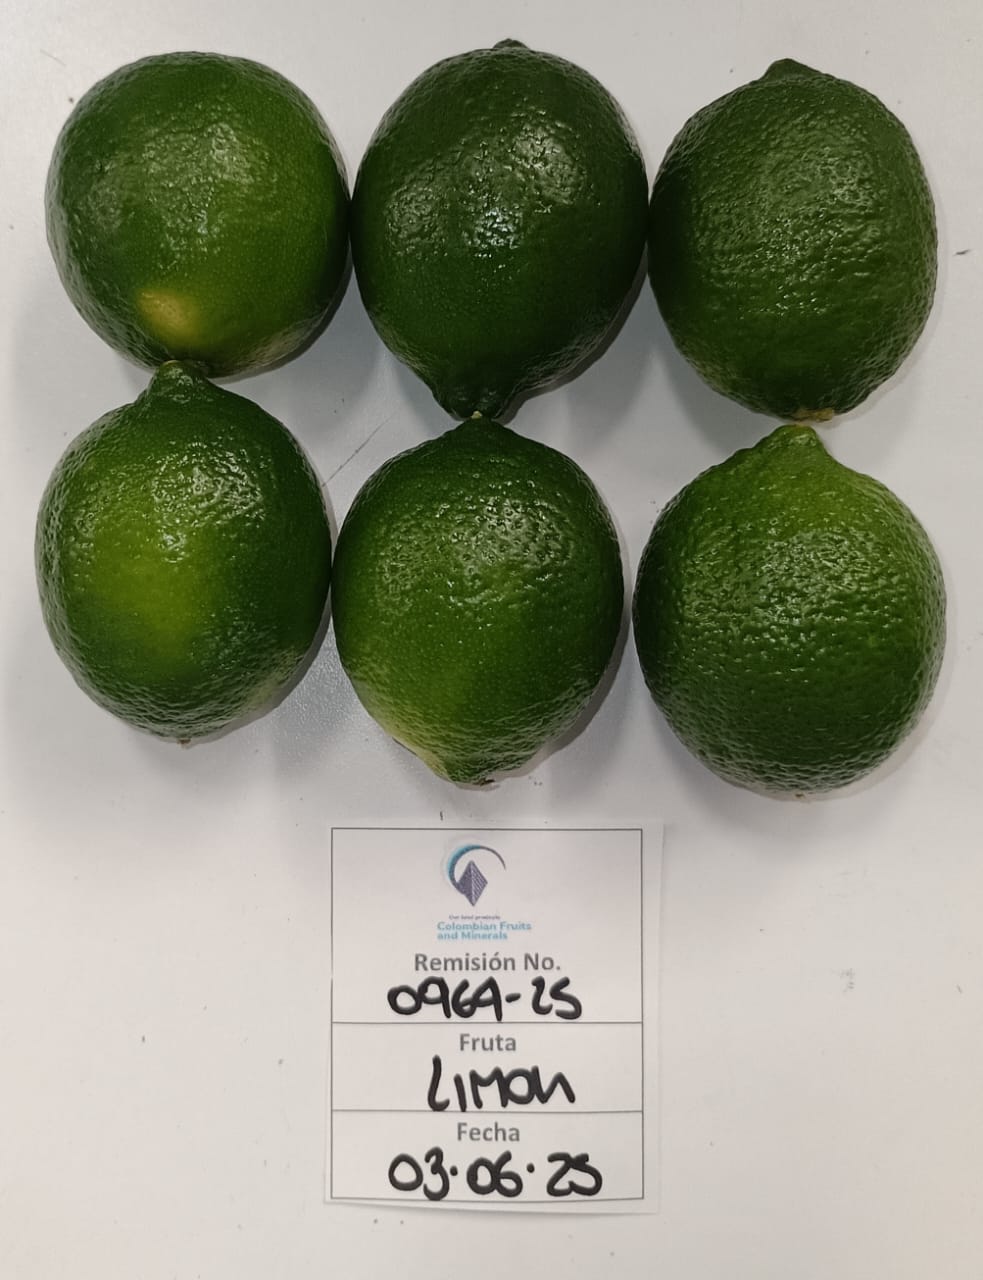 Our best products
Colombian Fruits
and Minerals
Remisión No.
0969-25
Fruta
LIMON
Fecha
03.06.25